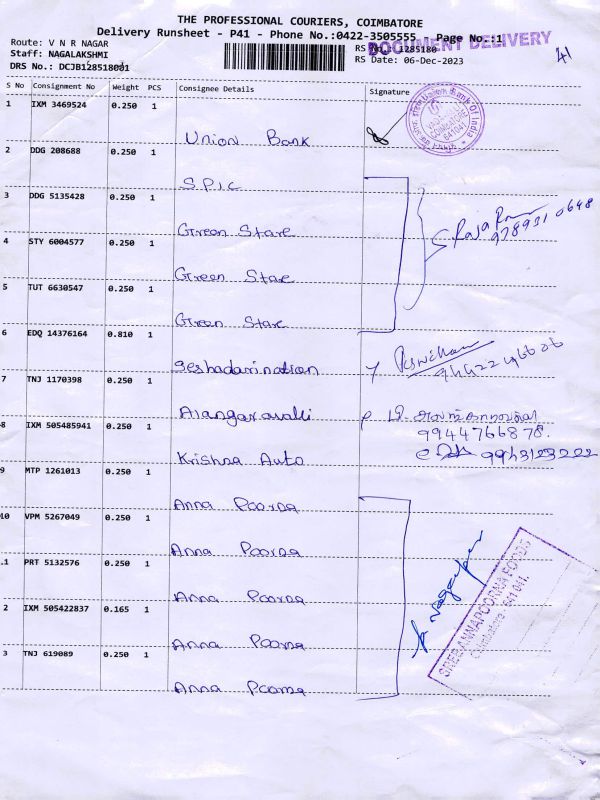 THE PROFESSIONAL COURIERS, COIMBATORE
Delivery Runsheet - P41 - Phone No.:0422-3505555 Page No.:1
DOCUMENT DELIVERY
41
Route: V N R NAGAR
RS No.: 1285180
Staff: NAGALAKSHMI
RS Date: 06-Dec-2023
DRS No.: DCJB128518001
S No Consignment No Weight PCS Consignee Details Signature
1 IXM 3469524 0.250 1
Union Bank
2 DDG 208688 0.250 1
S.P.I.C
3 DDG 5135428 0.250 1
Green Stare
4 STY 6004577 0.250 1
Green Stae
5 TUT 6630547 0.250 1
Green Stae
6 EDQ 14376164 0.810 1
Seshadarination
7 TNJ 1170398 0.250 1
Alangaravalli
8 IXM 505485941 0.250 1
9944766878.
Krishna Auto
9943123222
9 MTP 1261013 0.250 1
Anna Poorna
10 VPM 5267049 0.250 1
Anna Poorna
.1 PRT 5132576 0.250 1
Anna Poorna
2 IXM 505422837 0.165 1
Anna Poorna
3 TNJ 619089 0.250 1
Anna Poorna
SHREE ANNAPOORNA FOODS
Coimbatore - 641 041.